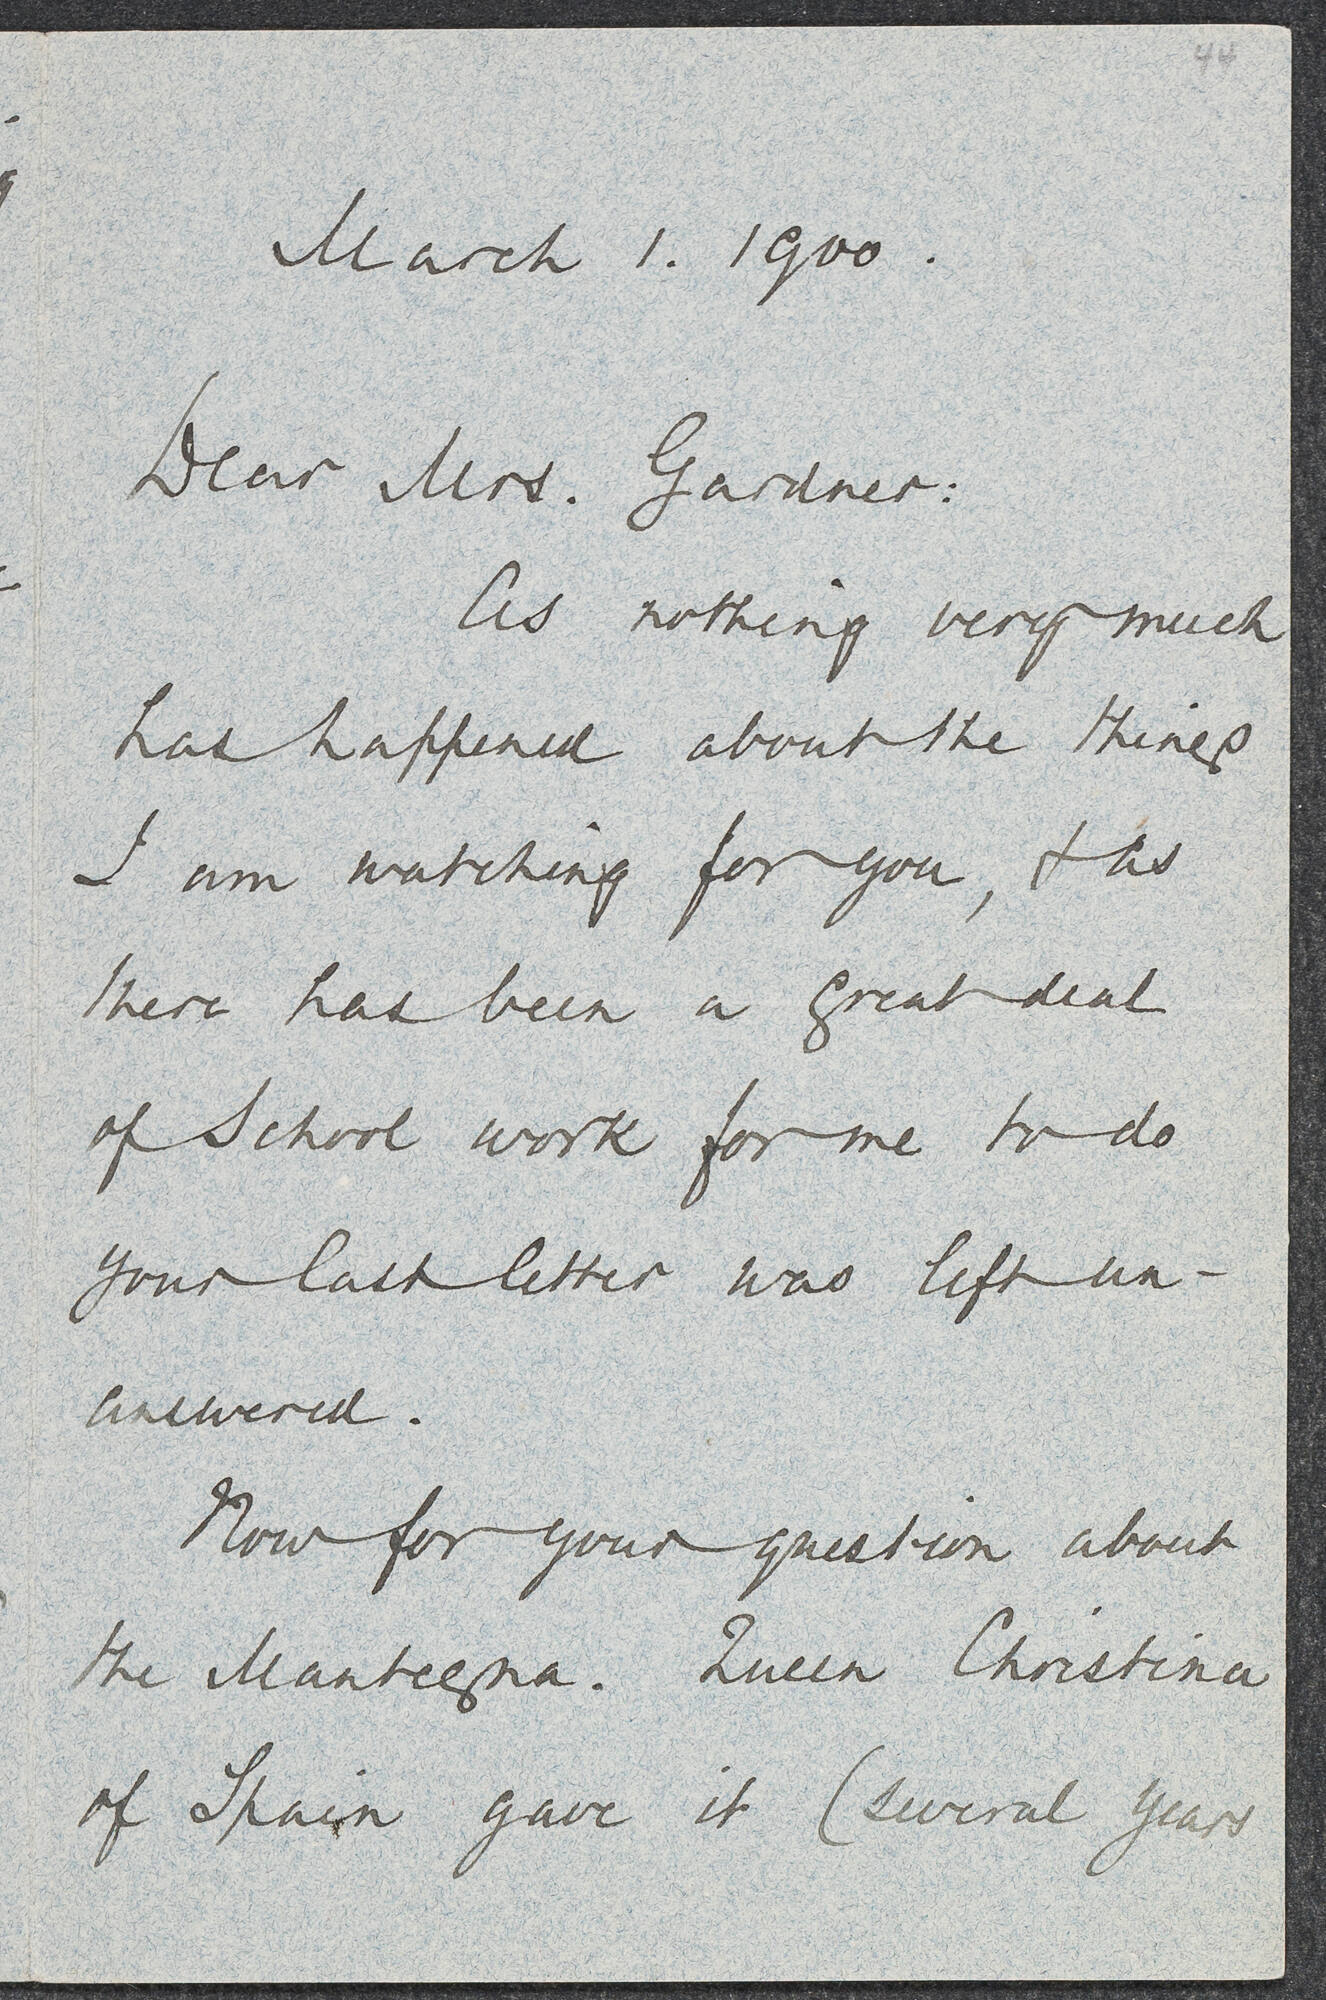 44
March 1. 1900.
Dear Mrs. Gardner:
As nothing very much
has happened about the things
I am watching for you, & as
there has been a great deal
of School work for me to do
your last letter was left un-
answered.
Now for your question about
the Mantegna. Queen Christina
of Spain gave it (several years